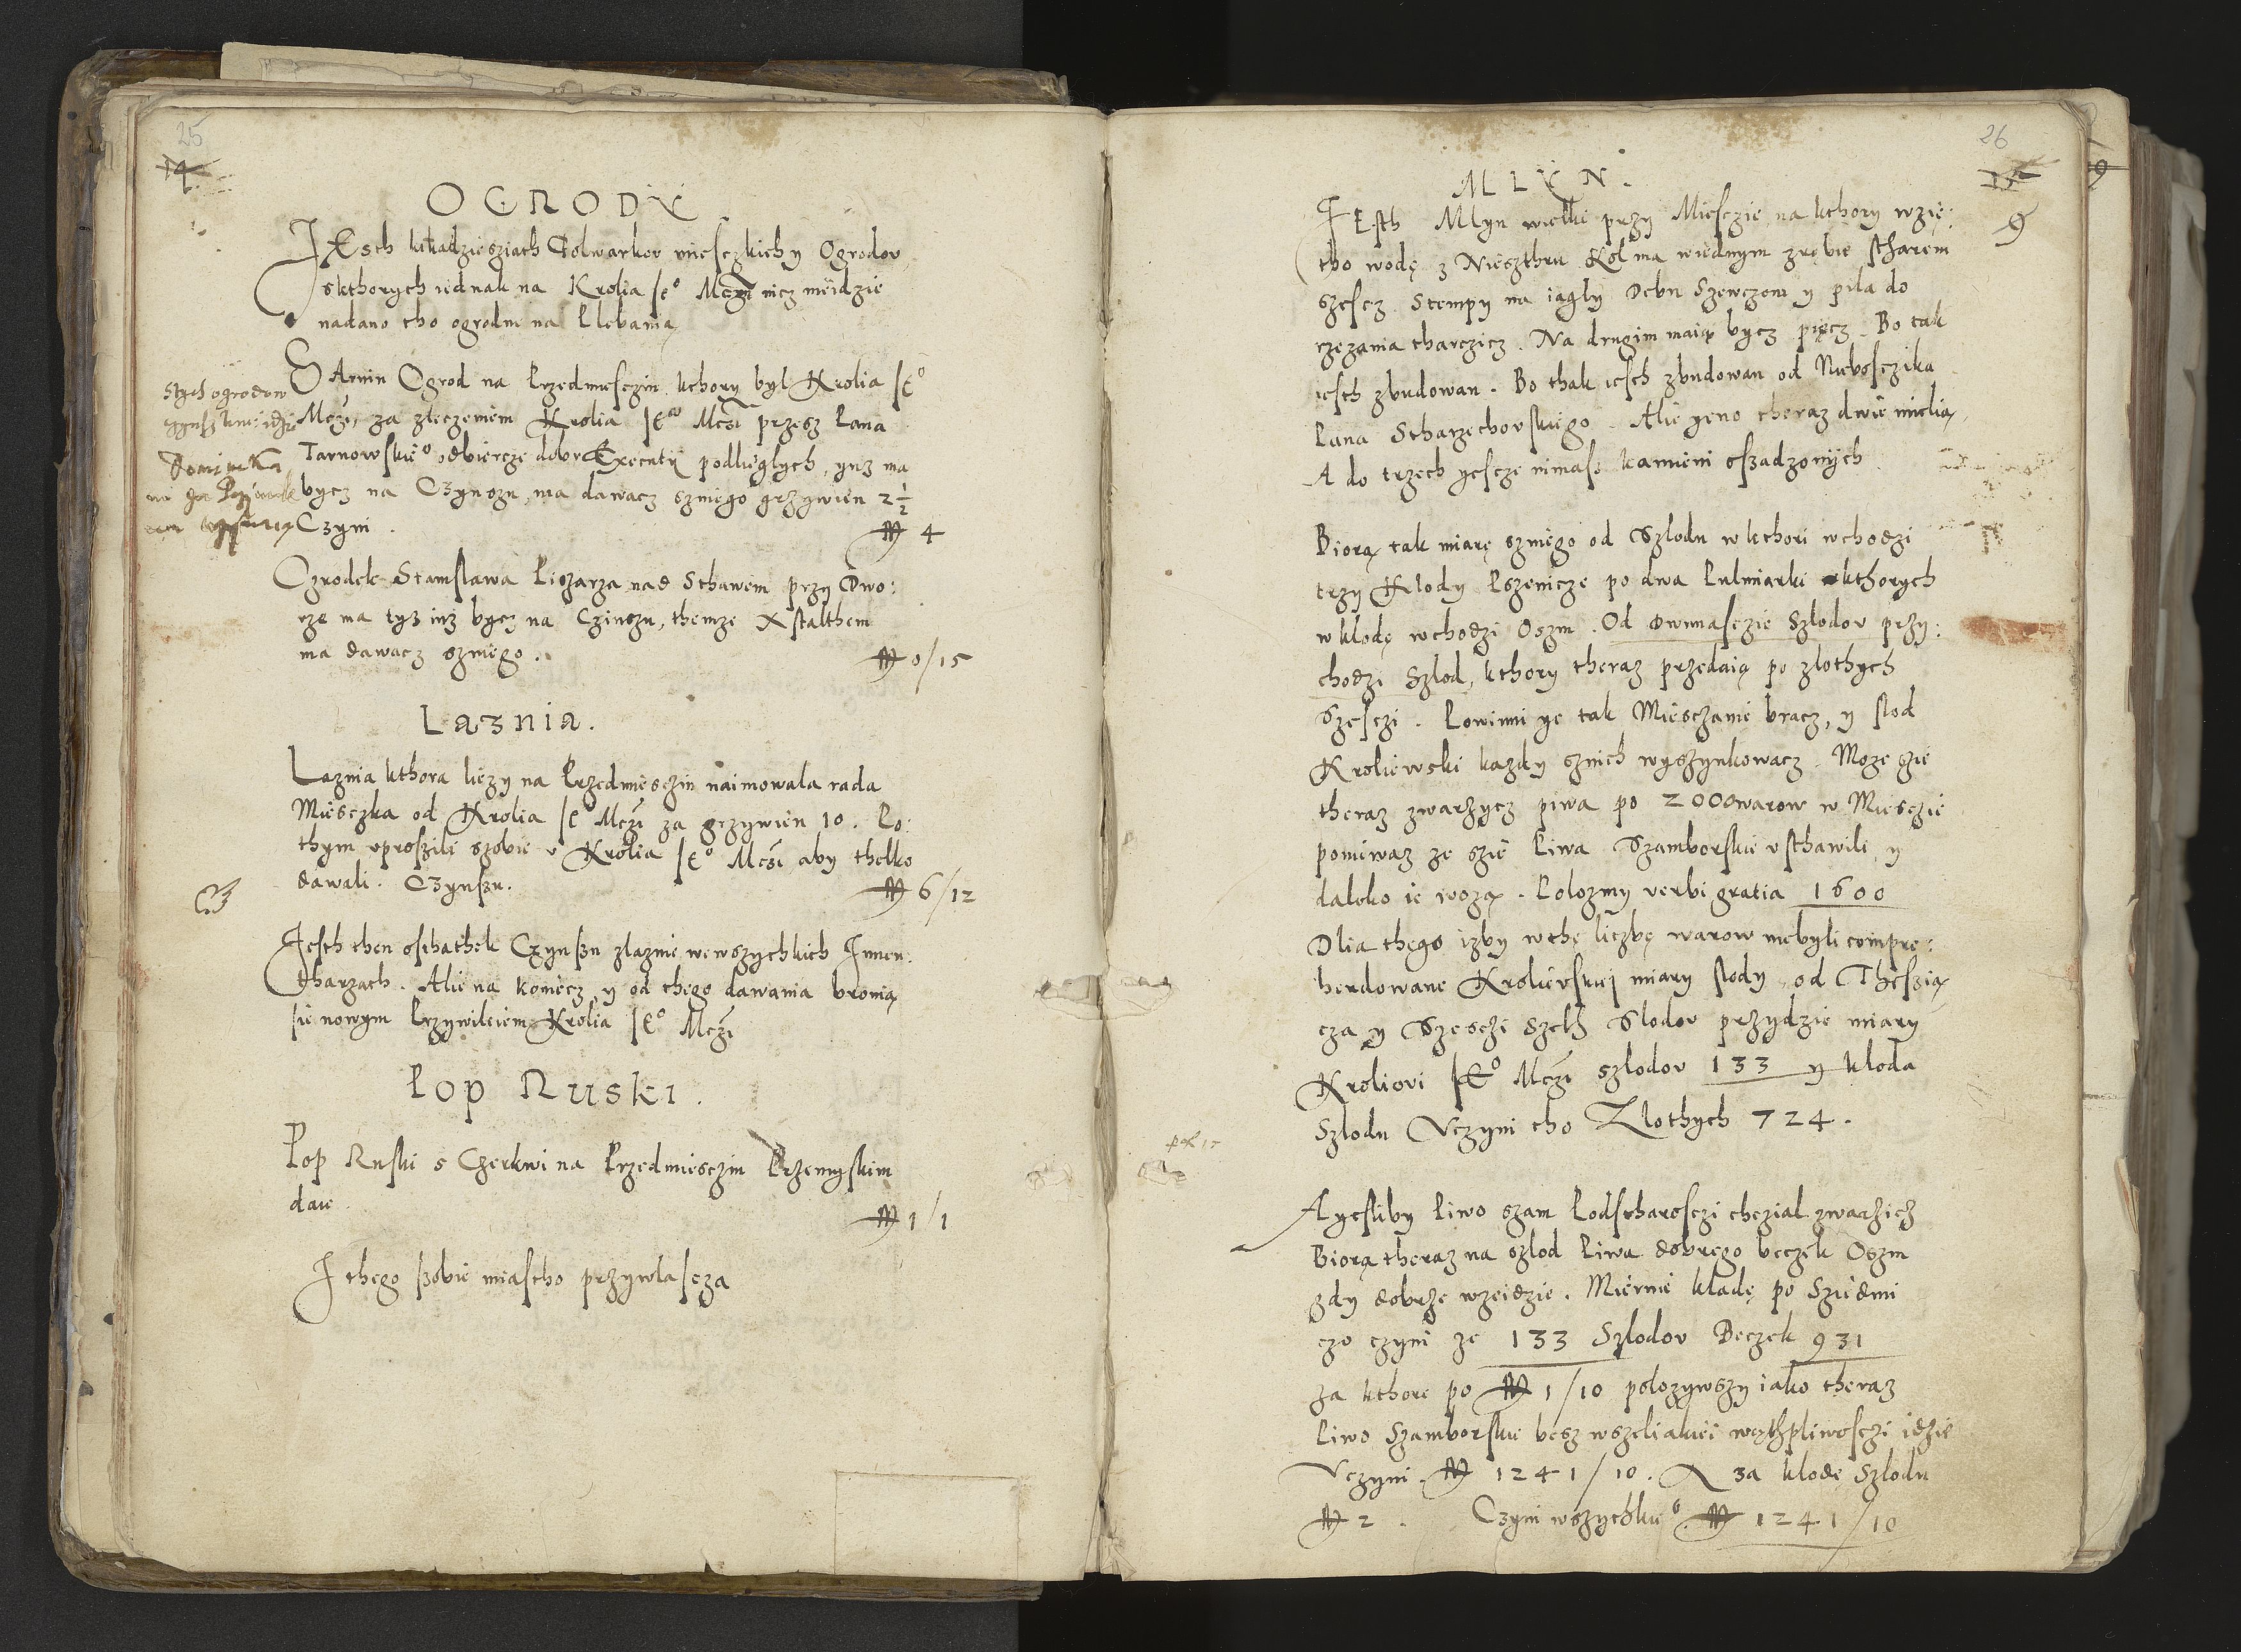 25
14
OGRODY
JEsch kilkadziesziath Folwarkow miesczkich y Ogrodov
skthorych iednak na Krolia Je° Mczi nicz nieidzie
nadano tho ogrodni na Plebania
SArnin Ogrod na Przedmiesczin kthory byl Krolia Je°
Mczi, za zleczeniem Krolia Je° Mczi przesz Pana
Tarnowskie° odbiercze dobr Executij podlieglych, ynz ma
bycz na Czynszu, ma dawacz szniego grzywien 2 1/2
Czyni . M 4
stych ogrodow
Dominika
Ogrodek Stanislawa Piszarza nad Sthawem przy Dwo:
rze ma tyz inz bycz na Czinszu, themze Xstalthem
ma dawacz szniego . M 0/15
Laznia.
Laznia kthora liezy na Przedmiesczin naimowala rada
Miesczka od Krolia Je° Mczi za grzywien 10. Po:
thym uproszili szobie v Krolia Je° Mczi aby thelko
dawali. Czynszu. M 6/12
Jesth then osthathek Czynszu zlaznie wewszychkich Inuen:
tharzach. Alie na koniecz y od thego dawania bronią
sie nowym Przywileiem Krolia Je° Mczi
Pop Ruski.
Pop Ruski s Czerkwi na Przedmiesczin Przemyskim
daie. M 1/1
J thego szobie miastho przywlascza
26
9
MLYN.
JEsth Mlyn wielki przy Miesczie, na kthory wzię:
tho wodę z Niesthru Kol ma wiednym zrębie stharem
szescz Stempy na iagly Debu Szewczom y pila do
rzezania tharczicz. Na drugim maią bycz pięcz. Bo tak
iesth zbudowan. Bo thak iesth zbudowan od Nieboszczika
Pana Stharzechovskiego. Alie yeno theraz dwie mielią,
A do trzech yescze nimasz kamieni oszadzonych
Biorą tak miarę szniego od Szlodu w kthori wchodzi
trzy Klody Pszenicze po dwa Pulmiarki kthorych
w klodę wchodzi Oszm. Od Dwunasczie Szlodov przy:
chodzi Szlod, kthory theraz przedaią po zlothych
Szesczi. Powinni ye tak Miesczanie bracz, y slod
Kroliewski kazdy sznich wyszynkowacz. Moze szie
theraz zwarzycz piwa po 2000 warow w Miesczie
poniewaz ze szie Piwa Szamborskie vsthawili y
daloko ie wozą. Polozmy verbi gratia 1600
Dlia thego izby wthę liczbę warow niebyli compre:
hendowane Krolievskiej miary slody, od Thesszią
cza y Szesczi Szeth Slodov przydzie miary
Kroliovi Je° Mczi szlodov 133 y kloda
Szlodu Vczyni tho Zlothych 724.
A yesliby Piwo szam Podstharosczi chczial zwarzicz
Biorą theraz na szlod Piwa dobrego beczek Oszm
gdy dobrze wzeidzie. Miernie kladę po Sziedmi
czo czyni ze 133 Szlodov Beczek 931
za kthore po M 1/10 polozywszy iako theraz
Piwo Szamborskie besz wszeliakiei wąthpliwosczi idzie
Vczyni. M 1241/10. A za klodę Szlodu
M 2. Czyni wszychkie° M 1241/10